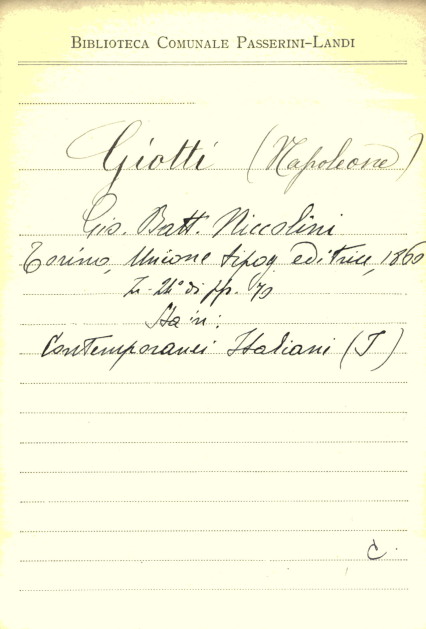 BIBLIOTECA COMUNALE PASSERINI-LANDI
Giotti (Napoleone)
Gio. Batt. Niccolini
Torino, Unione tipog. editrice, 1860
In-24° di pp. 70
Sta in:
Contemporanei Italiani (I)
C.